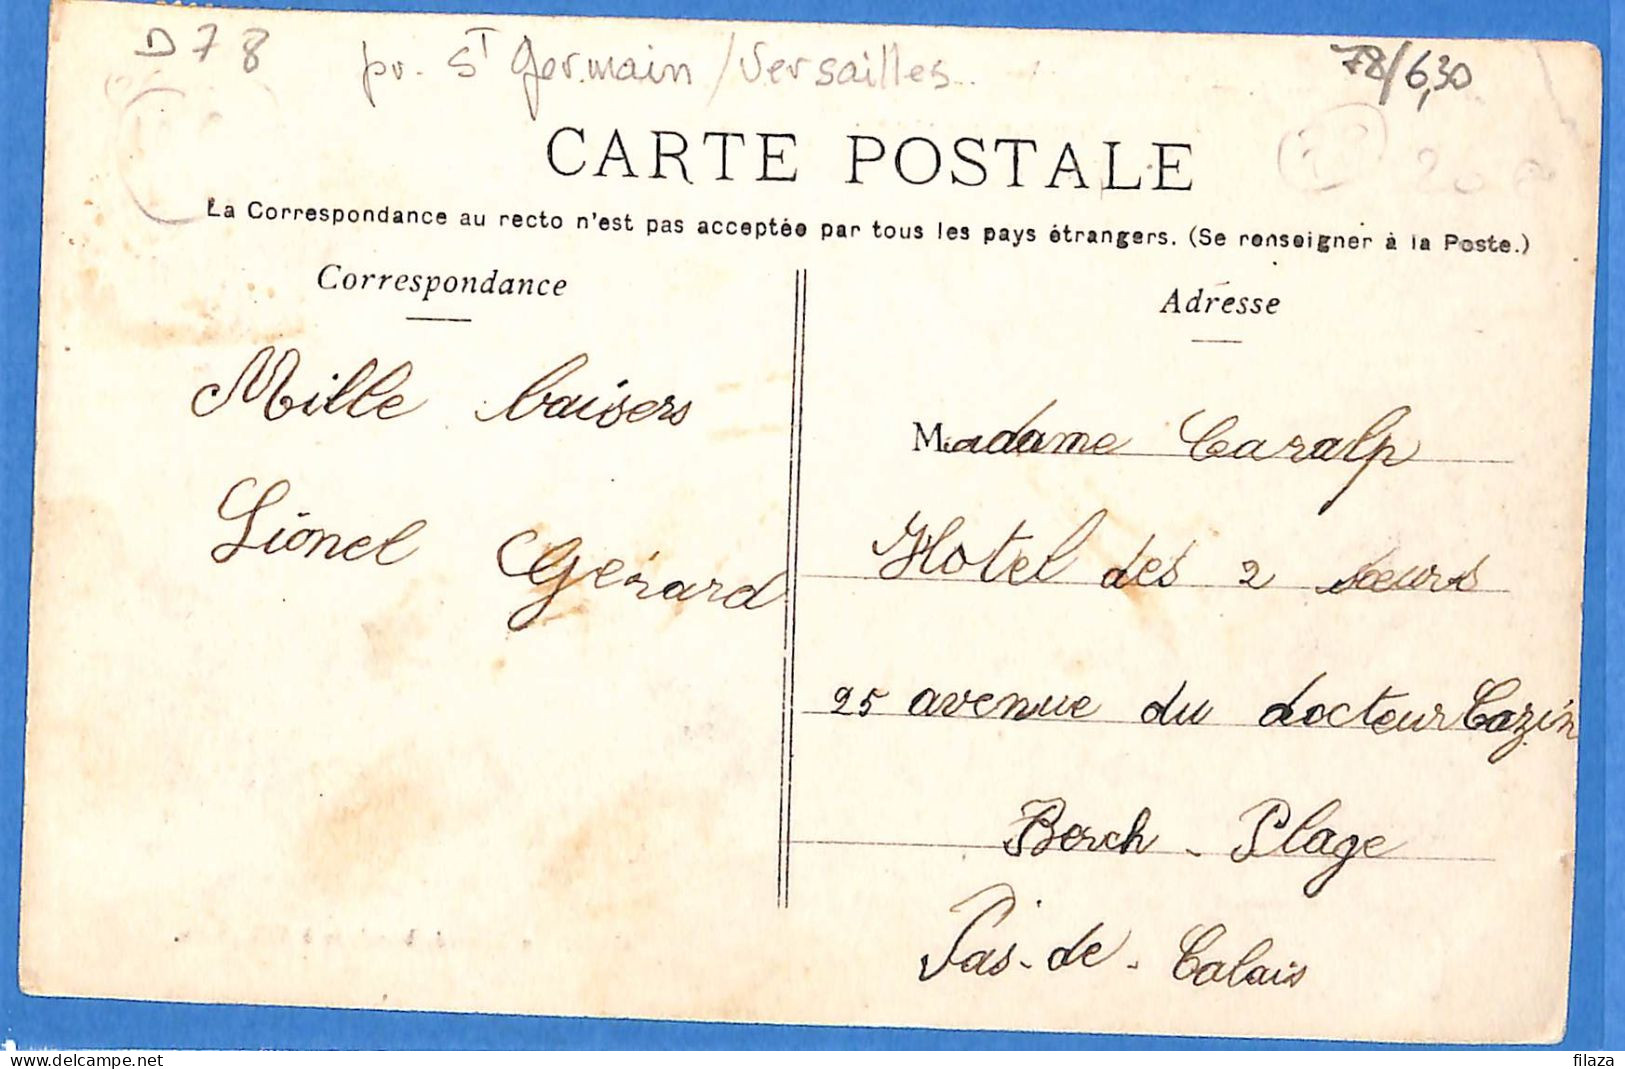 D 78
pr. St Germain / Versailles
78/6,30
CARTE POSTALE
La Correspondance au recto n'est pas acceptée par tous les pays étrangers. (Se renseigner à la Poste.)
Correspondance
Mille baisers
Lionel Gérard
Adresse
Madame Caralp
Hotel des 2 sœurs
25 avenue du docteur Cazin
Berck - Plage
Pas-de-Calais
www.delcampe.net
filaza